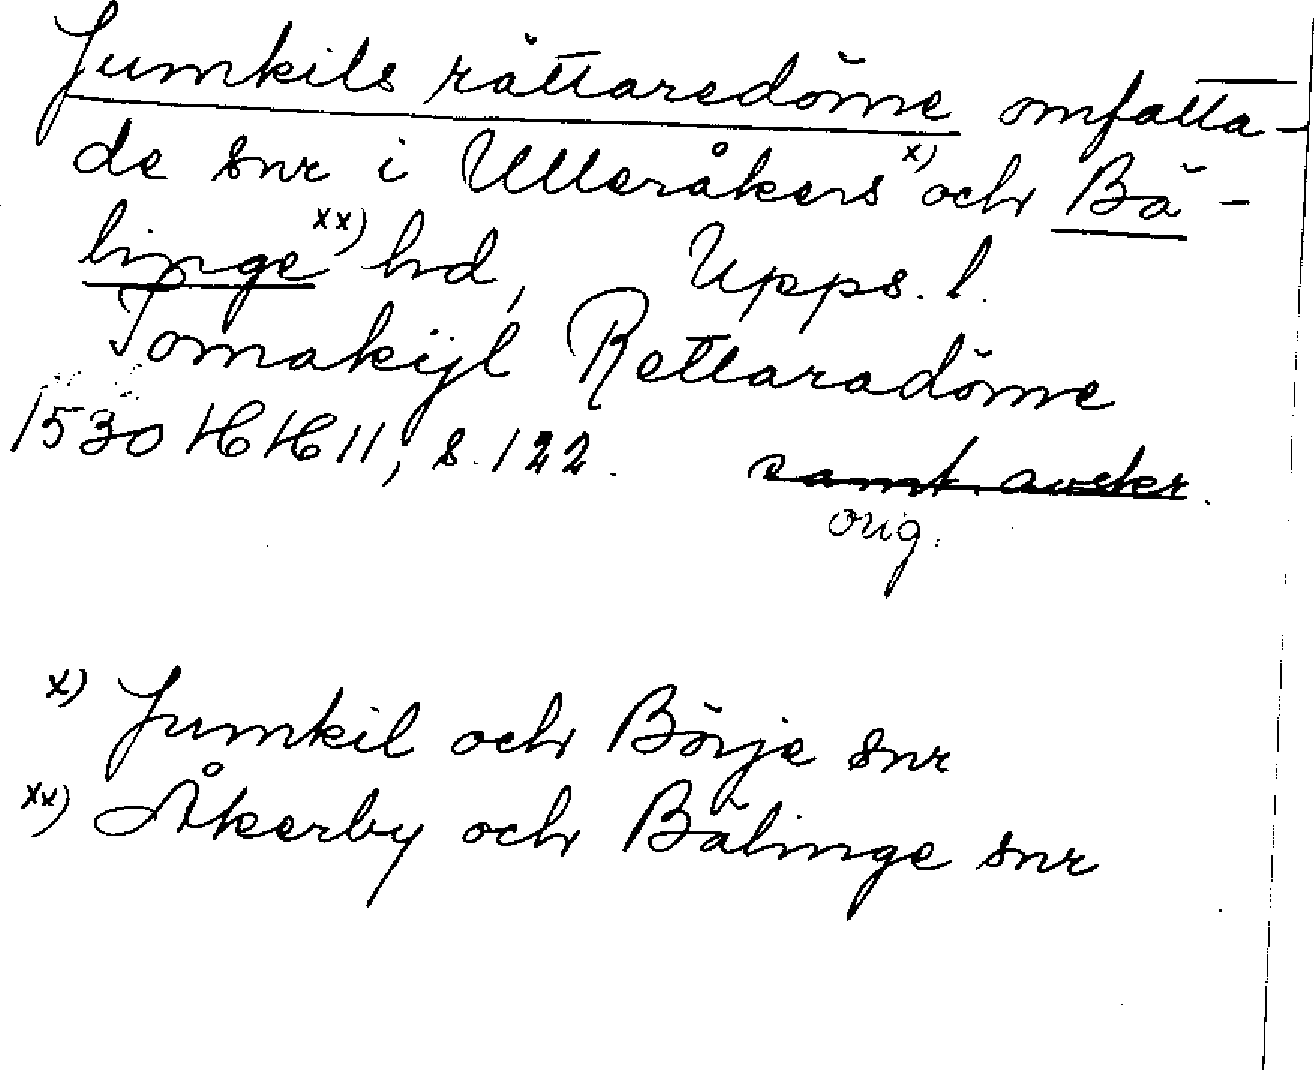 Jumkils rättaredöme omfatta-
de snr i Ulleråkers x) och Bä-
linge xx) hd, Upps. l.
Tomakijl Rettaradöme
1530 HH 11, s. 122. samt. avskr.
orig.
x) Jumkil och Börje snr
xx) Åkerby och Bälinge snr